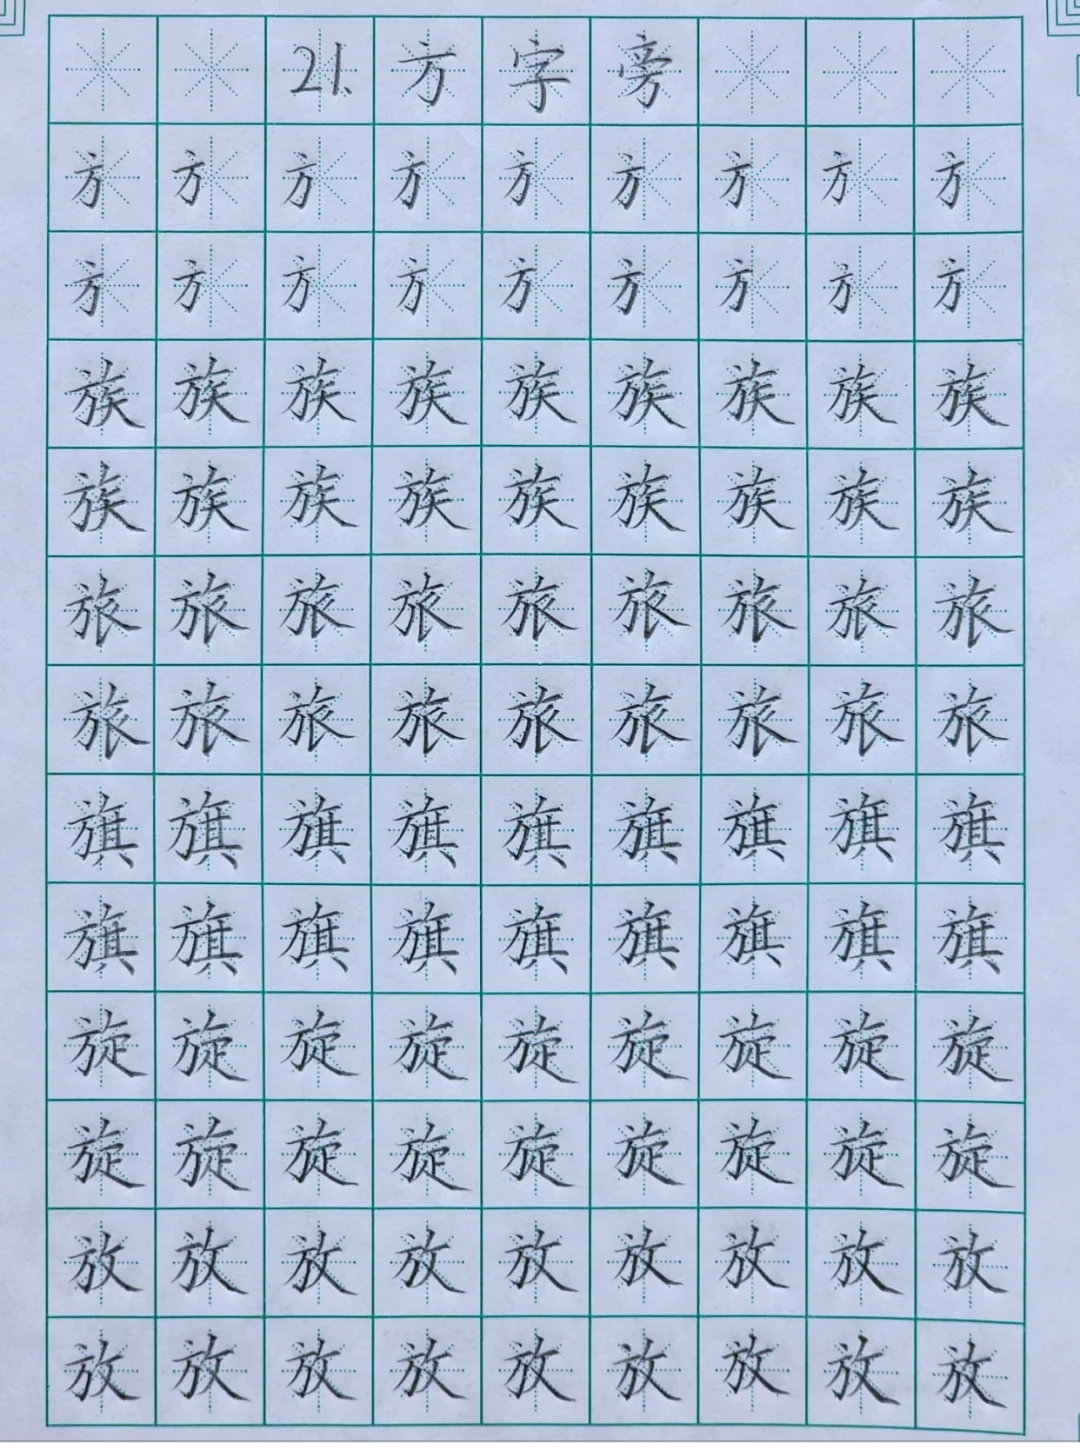 21.方字旁
方方方方方方方方方
方方方方方方方方方
族族族族族族族族族
族族族族族族族族族
旅旅旅旅旅旅旅旅旅
旅旅旅旅旅旅旅旅旅
旗旗旗旗旗旗旗旗旗
旗旗旗旗旗旗旗旗旗
旋旋旋旋旋旋旋旋旋
旋旋旋旋旋旋旋旋旋
放放放放放放放放放
放放放放放放放放放